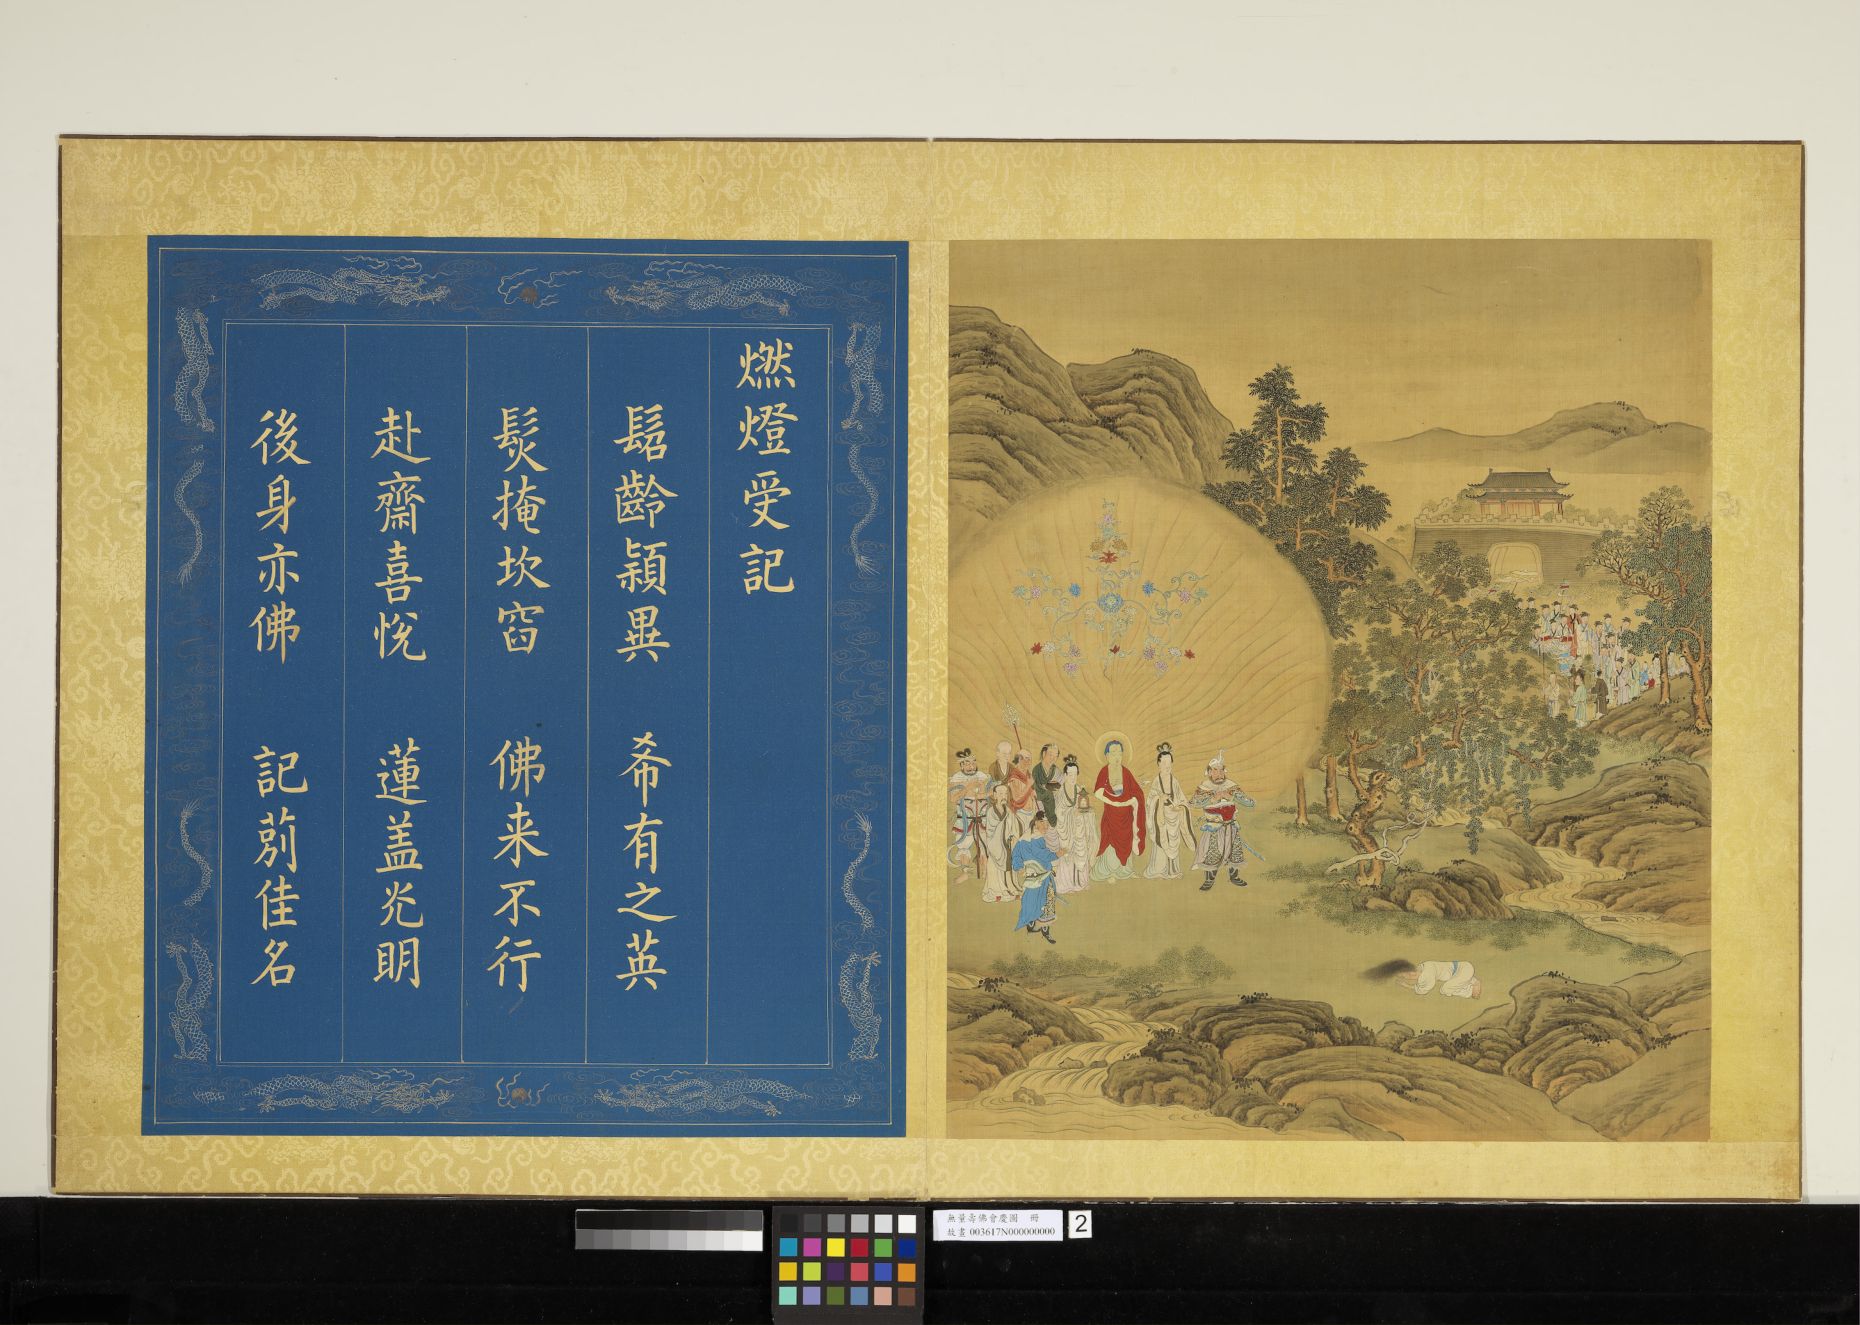 燃燈受記
髫齡穎異 希有之英
髮掩坎窞 佛来不行
赴齋喜悅 蓮盖光明
後身亦佛 記莂佳名
無量壽佛會慶圖 冊
故畫 003617N000000000
2